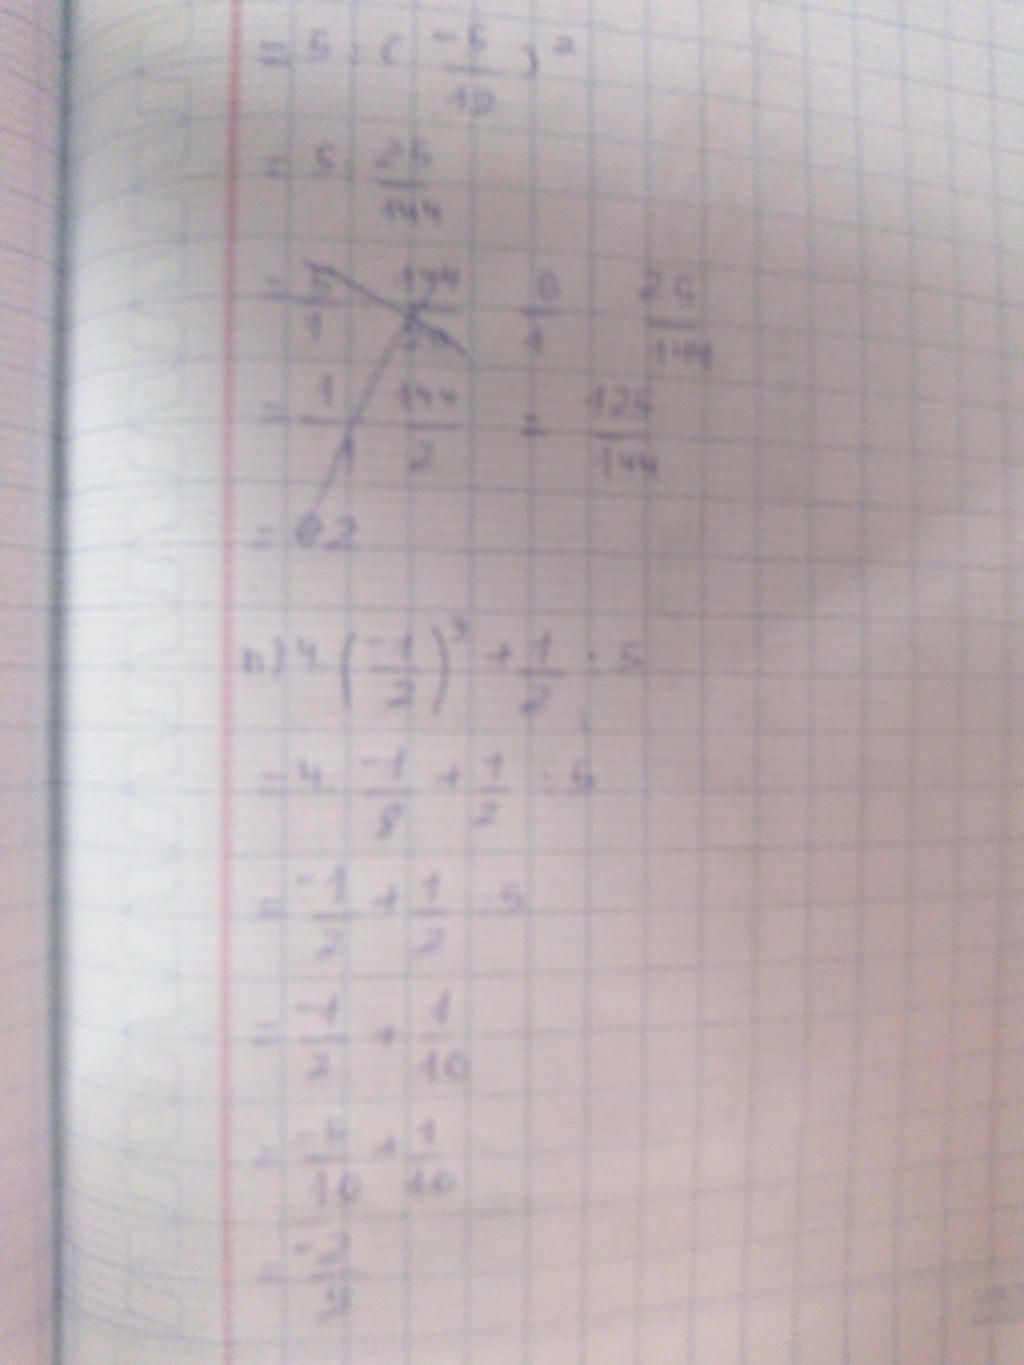 = 5 · ( -5/12 )²
= 5 · 25/144
= 5/1 144/25 5/1 25/144
= 1/1 144/2 = 125/144
= 62
n) 4 · (-1/2)³ + 1/2 : 5
= 4 · -1/8 + 1/2 : 5
= -1/2 + 1/2 : 5
= -1/2 + 1/10
= -5/10 + 1/10
= -2/5